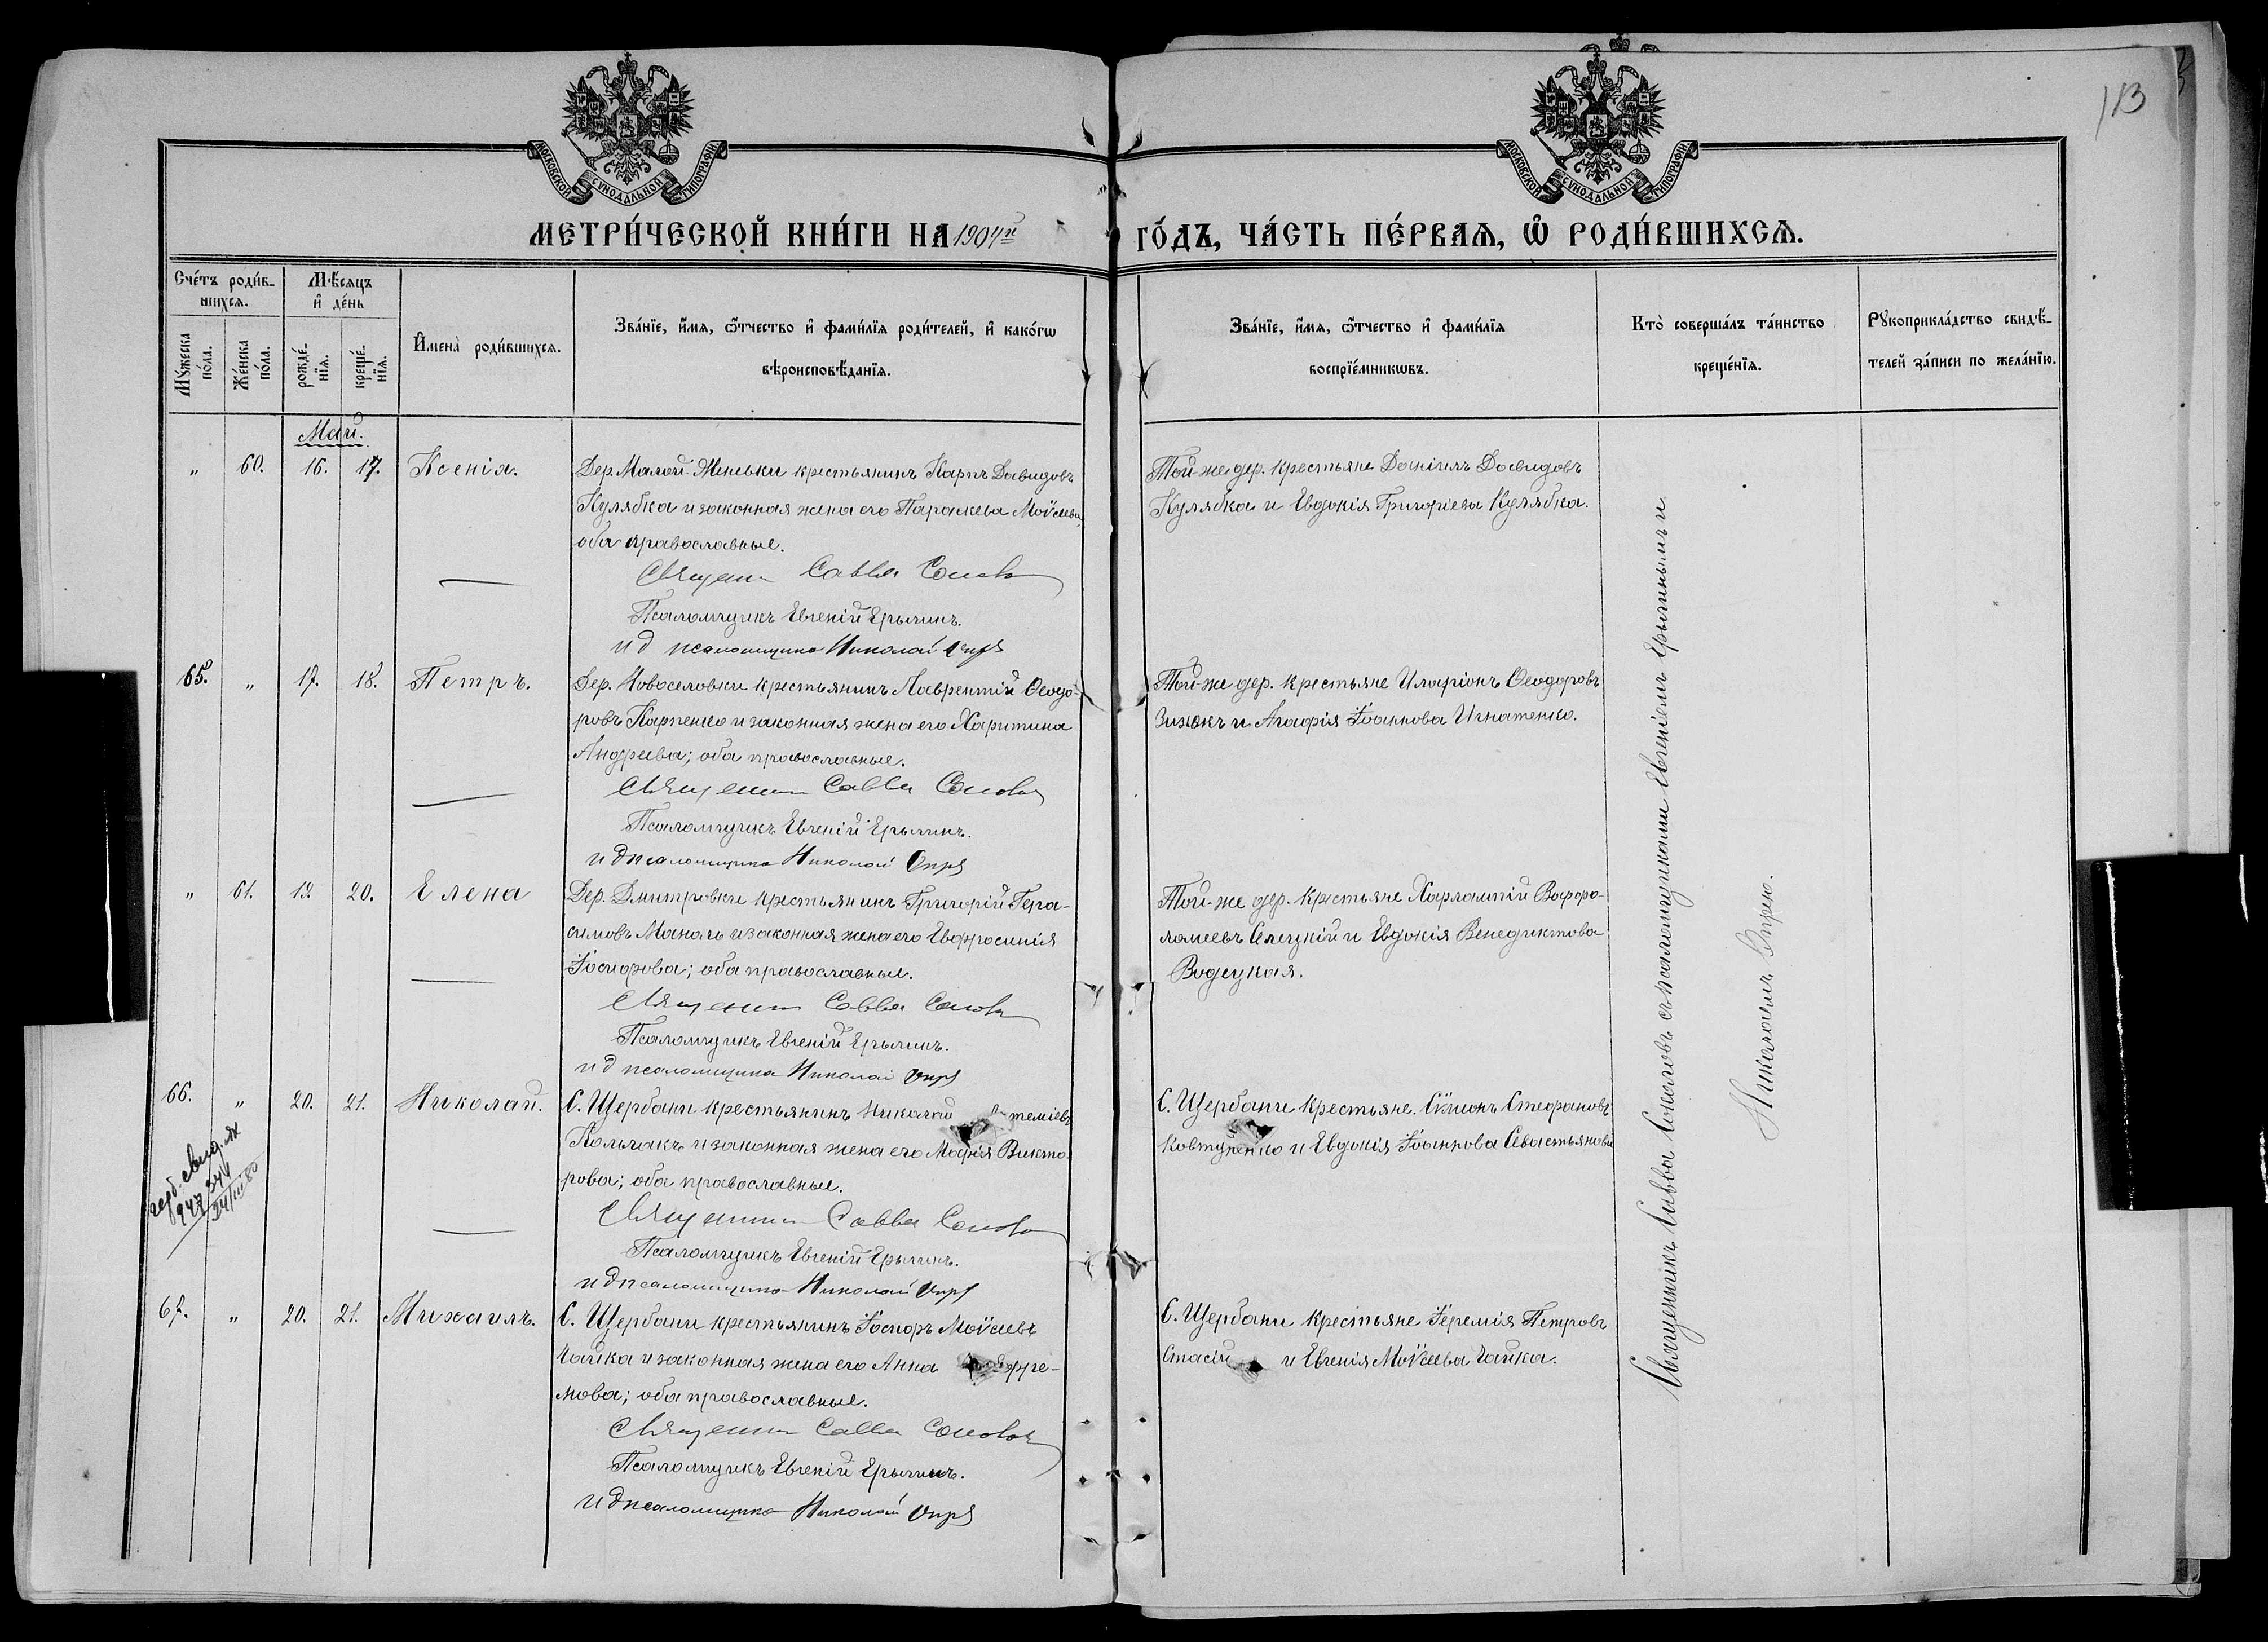 113
МОСКОВСКОЙ СѴНОДАЛЬНОЙ ТИПОГРАФІИ
МОСКОВСКОЙ СѴНОДАЛЬНОЙ ТИПОГРАФІИ
МЕТРИ́ЧЕСКОЙ КНИ́ГИ НА 1904й ГО́ДЪ, ЧА́СТЬ ПЕ́РВАѦ, Ѡ҆ РОДИ́ВШИХСѦ.
Сче́тъ роди́вшихсѧ.
Мꙋ́жеска по́ла.
Же́нска по́ла.
Мѣ́сяцъ и҆ де́нь
рожде́нїѧ.
креще́нїѧ.
И҆мена̀ роди́вшихсѧ.
Зва́нїе, и҆́мѧ, ѻ҆́тчество и҆ фами́лїѧ роди́телей, и҆ како́гѡ
вѣроисповѣ́данїѧ.
Зва́нїе, и҆́мѧ, ѻ҆́тчество и҆ фами́лїѧ
воспрїе́мникѡвъ.
Кто̀ соверша́лъ та́инство
креще́нїѧ.
Рꙋкоприкла́дство свидѣ́-
телей за́писи по жела́нїю.
Май.
" 60. 16. 17. Ксенія.
Дер. Малой Женьвки крестьянинъ Карпъ Давидовъ
Кулябка и законная жена его Параскева Моѵсеева,
оба православные.
Священ Савва Соколов
Псаломщикъ Евгеній Ерылинъ.
и д псаломщика Николай Опря
Той-же дер. крестьяне Даніилъ Давидовъ
Кулябка и Евдокія Григоріева Кулябка.
65. " 17. 18. Петръ.
Дер. Новоселовки крестьянинъ Лаврентій Ѳеодо-
ровъ Карпенко и законная жена его Харитина
Андреева; оба православные.
Священ Савва Соколов
Псаломщикъ Евгеній Ерылинъ.
и д псаломщика Николай Опря
Той-же дер. крестьяне Иларіонъ Ѳеодоровъ
и Агафія Іоаннова Игнатенко.
" 61. 19. 20. Елена
Дер. Дмитровки крестьянинъ Григорій Гера-
симовъ и законная жена его Евфросинія
Іосифова; оба православные.
Священ Савва Соколов
Псаломщикъ Евгеній Ерылинъ.
и д псаломщика Николай Опря
Той-же дер. крестьяне Харлампій Варфоро-
ломеевъ и Евдокія Венедиктова
66. " 20. 21. Николай.
С. Щербани крестьянинъ Николай темьевъ
Кольчакъ и законная жена его Марія Викто-
рова; оба православные.
Священ Савва Соколов
Псаломщикъ Евгеній Ерылинъ.
и д псаломщика Николай Опря
С. Щербани крестьяне Сѵмеонъ Стефановъ
Ковтуненко и Евдокія Іоаннова Севастьянова
67. " 20. 21. Михаилъ.
С. Щербани крестьянинъ Іосифъ Моѵсеевъ
Чайка и законная жена его Анна Ефре-
мова; оба православные.
Священ Савва Соколов
Псаломщикъ Евгеній Ерылинъ.
и д псаломщика Николай Опря
С. Щербани крестьяне Іеремія Петровъ
Стасій и Евгенія Моѵсеева Чайка.
Священникъ Савва Соколовъ съ псаломщиками Евгеніемъ Ерылинымъ и
Николаемъ Опрею.